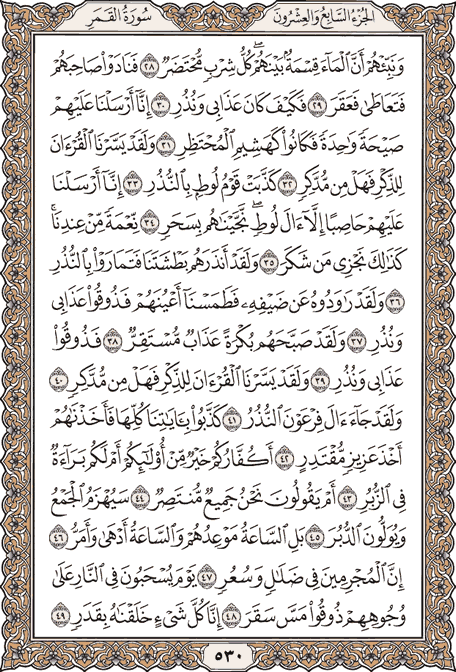 الجزء السابع والعشرون سورة القمر
وَنَبِّئْهُمْ أَنَّ ٱلْمَآءَ قِسْمَةٌۢ بَيْنَهُمْ ۖ كُلُّ شِرْبٍ مُّحْتَضَرٌ ٢٨ فَنَادَوْا۟ صَاحِبَهُمْ
فَتَعَاطَىٰ فَعَقَرَ ٢٩ فَكَيْفَ كَانَ عَذَابِى وَنُذُرِ ٣٠ إِنَّآ أَرْسَلْنَا عَلَيْهِمْ
صَيْحَةً وَٰحِدَةً فَكَانُوا۟ كَهَشِيمِ ٱلْمُحْتَظِرِ ٣١ وَلَقَدْ يَسَّرْنَا ٱلْقُرْءَانَ
لِلذِّكْرِ فَهَلْ مِن مُّدَّكِرٍ ٣٢ كَذَّبَتْ قَوْمُ لُوطٍۭ بِٱلنُّذُرِ ٣٣ إِنَّآ أَرْسَلْنَا
عَلَيْهِمْ حَاصِبًا إِلَّآ ءَالَ لُوطٍ ۖ نَّجَّيْنَٰهُم بِسَحَرٍ ٣٤ نِّعْمَةً مِّنْ عِندِنَا ۚ
كَذَٰلِكَ نَجْزِى مَن شَكَرَ ٣٥ وَلَقَدْ أَنذَرَهُم بَطْشَتَنَا فَتَمَارَوْا۟ بِٱلنُّذُرِ
٣٦ وَلَقَدْ رَٰوَدُوهُ عَن ضَيْفِهِۦ فَطَمَسْنَآ أَعْيُنَهُمْ فَذُوقُوا۟ عَذَابِى
وَنُذُرِ ٣٧ وَلَقَدْ صَبَّحَهُم بُكْرَةً عَذَابٌ مُّسْتَقِرٌّ ٣٨ فَذُوقُوا۟
عَذَابِى وَنُذُرِ ٣٩ وَلَقَدْ يَسَّرْنَا ٱلْقُرْءَانَ لِلذِّكْرِ فَهَلْ مِن مُّدَّكِرٍ ٤٠
وَلَقَدْ جَآءَ ءَالَ فِرْعَوْنَ ٱلنُّذُرُ ٤١ كَذَّبُوا۟ بِـَٔايَٰتِنَا كُلِّهَا فَأَخَذْنَٰهُمْ
أَخْذَ عَزِيزٍ مُّقْتَدِرٍ ٤٢ أَكُفَّارُكُمْ خَيْرٌ مِّنْ أُو۟لَٰٓئِكُمْ أَمْ لَكُم بَرَآءَةٌ
فِى ٱلزُّبُرِ ٤٣ أَمْ يَقُولُونَ نَحْنُ جَمِيعٌ مُّنتَصِرٌ ٤٤ سَيُهْزَمُ ٱلْجَمْعُ
وَيُوَلُّونَ ٱلدُّبُرَ ٤٥ بَلِ ٱلسَّاعَةُ مَوْعِدُهُمْ وَٱلسَّاعَةُ أَدْهَىٰ وَأَمَرُّ ٤٦
إِنَّ ٱلْمُجْرِمِينَ فِى ضَلَٰلٍ وَسُعُرٍ ٤٧ يَوْمَ يُسْحَبُونَ فِى ٱلنَّارِ عَلَىٰ
وُجُوهِهِمْ ذُوقُوا۟ مَسَّ سَقَرَ ٤٨ إِنَّا كُلَّ شَىْءٍ خَلَقْنَٰهُ بِقَدَرٍ ٤٩
٥٣٠